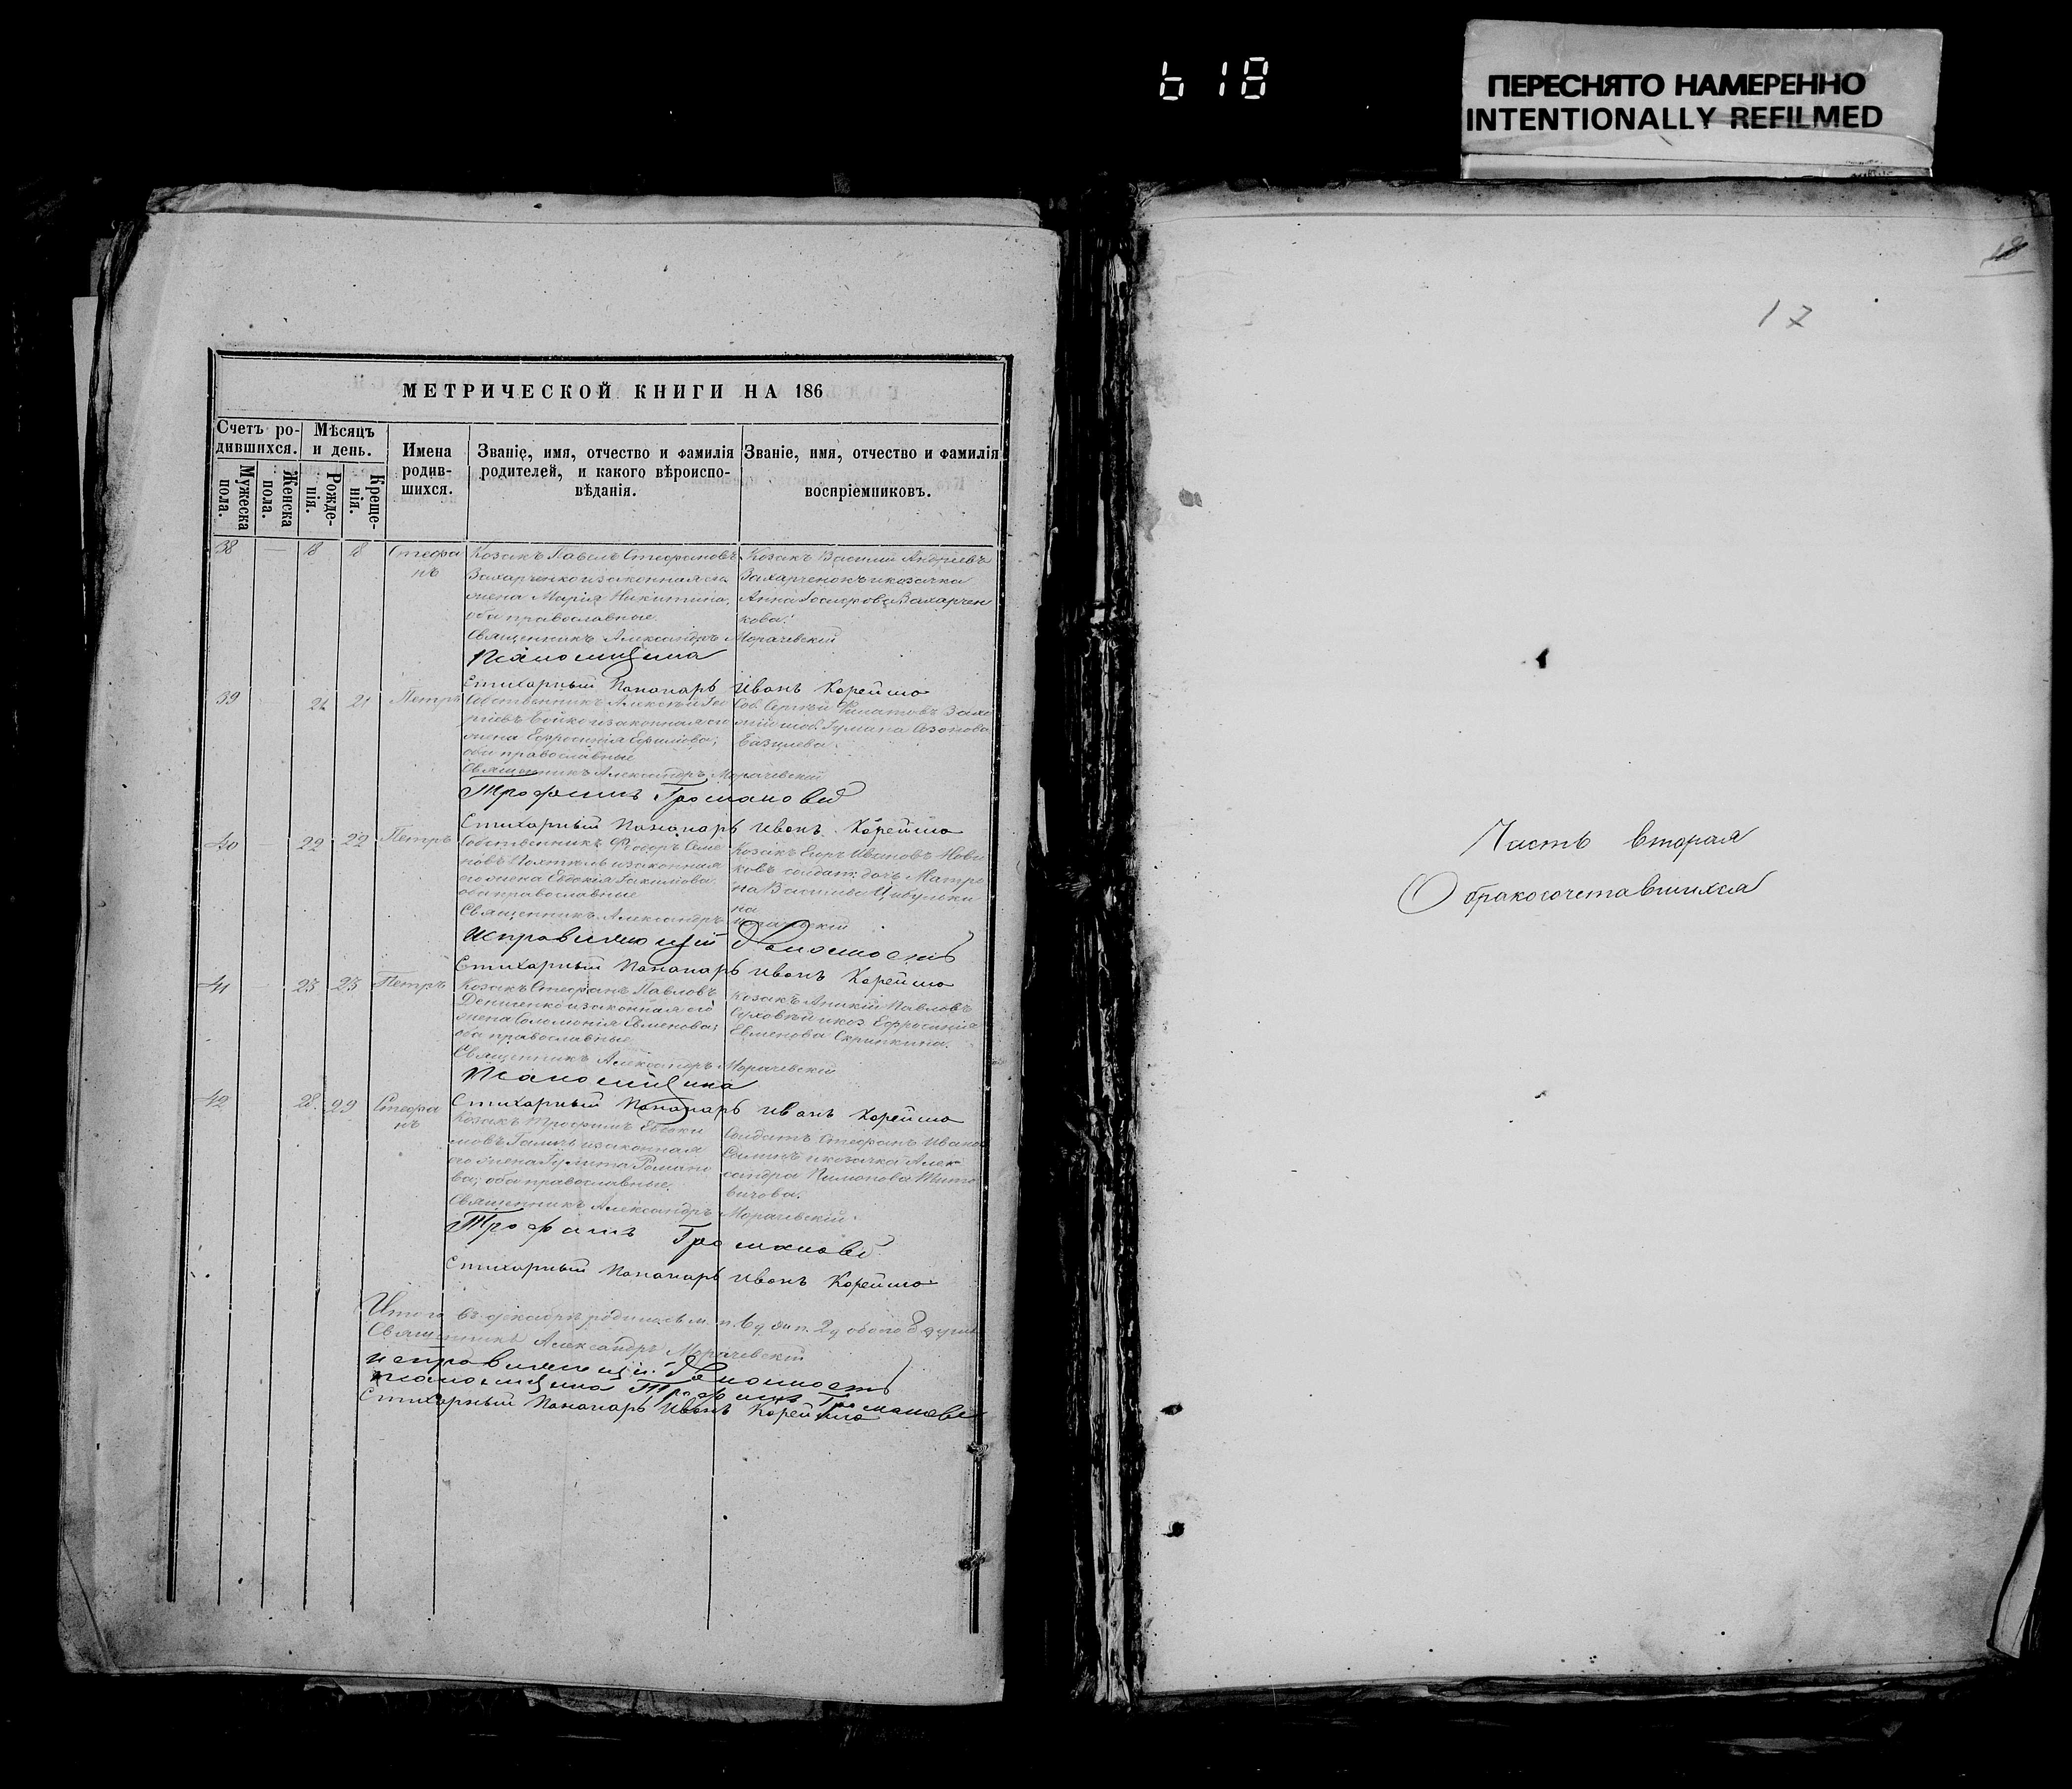 618
ПЕРЕСНЯТО НАМЕРЕННО
INTENTIONALLY REFILMED
МЕТРИЧЕСКОЙ КНИГИ НА 186
Счетъ ро-
дившихся.
Мѣсяцъ
и день.
Мужеска
пола.
Женска
пола.
Рожде-
нія.
Креще-
нія.
Имена
родив-
шихся.
Званіе, имя, отчество и фамилія
родителей, и какого вѣроиспо-
вѣданія.
Званіе, имя, отчество и фамилія
воспріемниковъ.
38 — 18 18 Стефа
нъ
Козакъ Павелъ Стефановъ
Захарченко и законная его
жена Марія Никитина,
оба православные.
Козакъ Василій Андріевъ
Захарченокъ и козачка
Анна Іосифова Захарчен
кова.
Священникъ Александръ Морачевскій
Стихарный Пономарь Иванъ Корейшо
39 — 21 21 Петръ
Собственникъ Алексѣй Гео
ргіевъ Бойко и законная его
жена Ефросинія Ефимова;
оба православные
Соб. Сергѣй Филатовъ
Священникъ Александръ Морачевскій
Трофимъ
Стихарный Пономарь Иванъ Корейшо
40 — 22 22 Петръ
Собственникъ Феодоръ Семе
новъ и законная
его жена Евдокія
оба православные
Козакъ Егоръ Ивановъ Нови
ковъ солдат. дочь Матре
на
Священникъ Александръ Морачевскій
Исправляющій Должность
Стихарный Пономарь Иванъ Корейшо
41 — 23 23 Петръ
Козакъ Стефанъ Павловъ
Денисенко и законная его
жена Соломонія Евменова;
оба православные
Козакъ Павловъ
Суховѣй и коз. Ефросинія
Евменова Скрипкина.
Священникъ Александръ Морачевскій
Стихарный Пономарь Иванъ Корейшо
42 28 29 Стефа
нъ
Козакъ Трофимъ Евдоки
мовъ и законная
его жена Романо
ва; оба православные.
Солдатъ Стефанъ Ивано
и козачка Алек
сандра Пимонова Тито
вичова.
Священникъ Александръ Морачевскій.
Трофимъ
Стихарный Пономарь Иванъ Корейшо
Итого въ декабрѣ родилось м. п. 6 ж. п. 2 обоего 8 душъ
Священникъ Александръ Морачевскій
исправляющій Должность
Трофимъ
Стихарный Пономарь Иванъ Корейшо
18
17
Часть вторая
О бракосочетавшихся